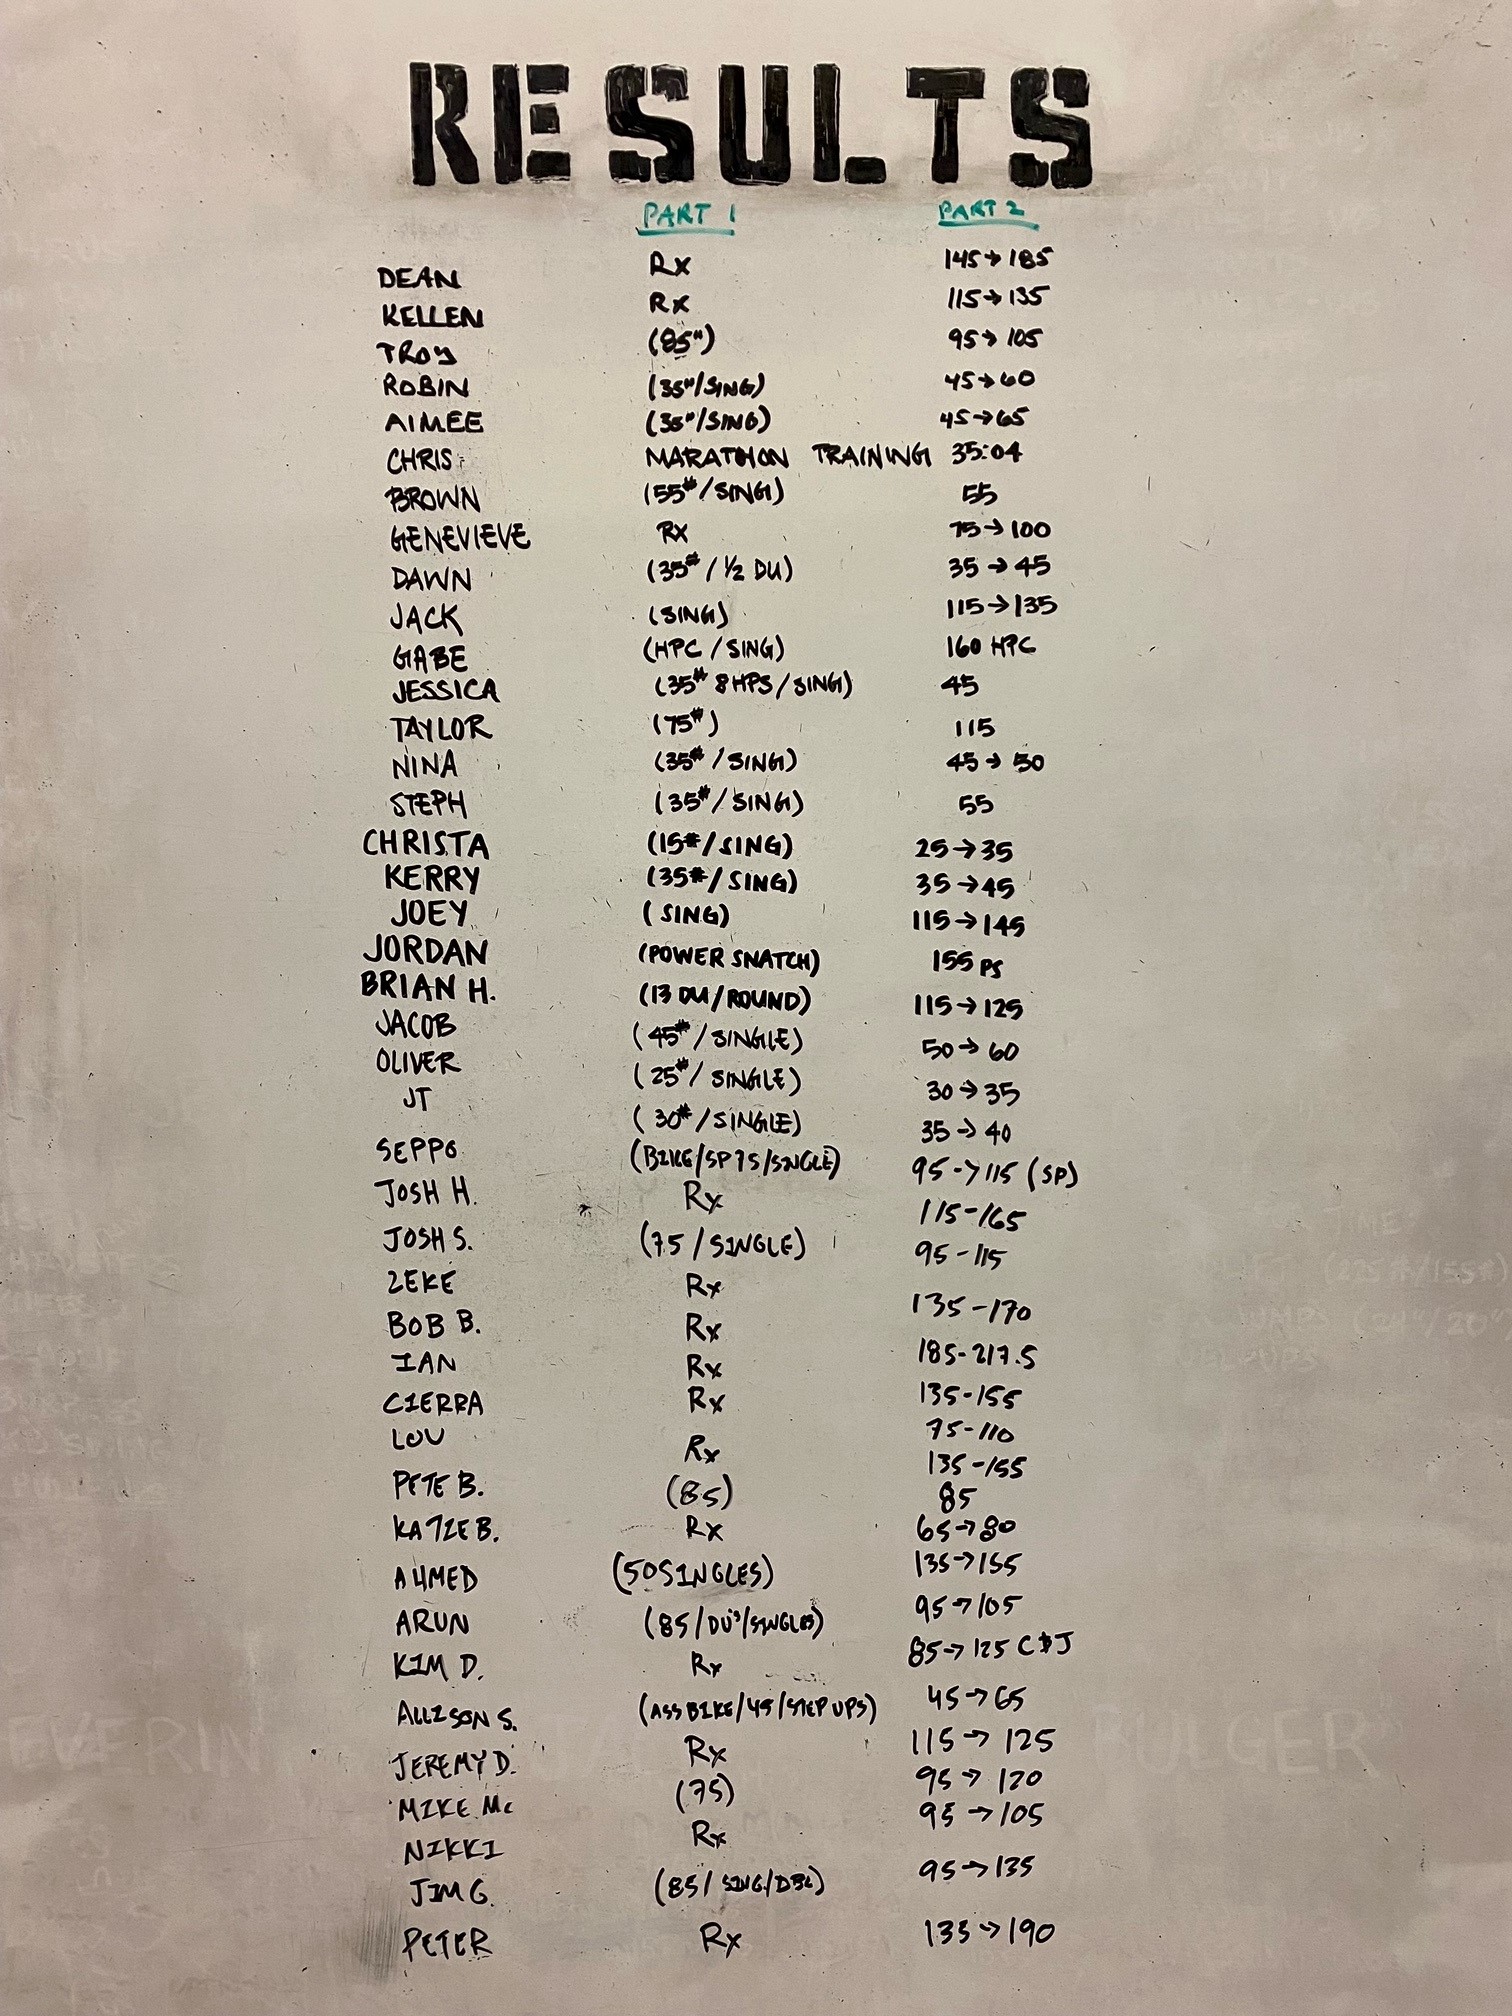 RESULTS
PART 1 PART 2
DEAN Rx 145→185
KELLEN Rx 115→135
TROY (85") 95→105
ROBIN (35"/SING) 45→60
AIMEE (35"/SING) 45→65
CHRIS MARATHON TRAINING 35:04
BROWN (55#/SING) 55
GENEVIEVE RX 75→100
DAWN (35#/½ DU) 35→45
JACK (SING) 115→135
GABE (HPC/SING) 160 HPC
JESSICA (35# 8HPS/SING) 45
TAYLOR (75#) 115
NINA (35#/SING) 45→50
STEPH (35#/SING) 55
CHRISTA (15#/SING) 25→35
KERRY (35#/SING) 35→45
JOEY (SING) 115→145
JORDAN (POWER SNATCH) 155 PS
BRIAN H. (13 DU/ROUND) 115→125
JACOB (45#/SINGLE) 50→60
OLIVER (25#/SINGLE) 30→35
JT (30#/SINGLE) 35→40
SEPPO (BIKE/SP75/SINGLE) 95→115 (SP)
JOSH H. Rx 115-165
JOSH S. (75/SINGLE) 95-115
ZEKE Rx 135-170
BOB B. Rx 185-217.5
IAN Rx 135-155
CIERRA Rx 75-110
LOU Rx 135-155
PETE B. (85) 85
KATIE B. Rx 65→80
AHMED (50SINGLES) 135→155
ARUN (85/DU's/SINGLES) 95→105
KIM D. Rx 85→125 C&J
ALLISON S. (ASS BIKE/45/STEP UPS) 45→65
JEREMY D. Rx 115→125
MIKE Mc (75) 95→120
NIKKI Rx 95→105
JIM G. (85/SING/DBL) 95→135
PETER Rx 135→190